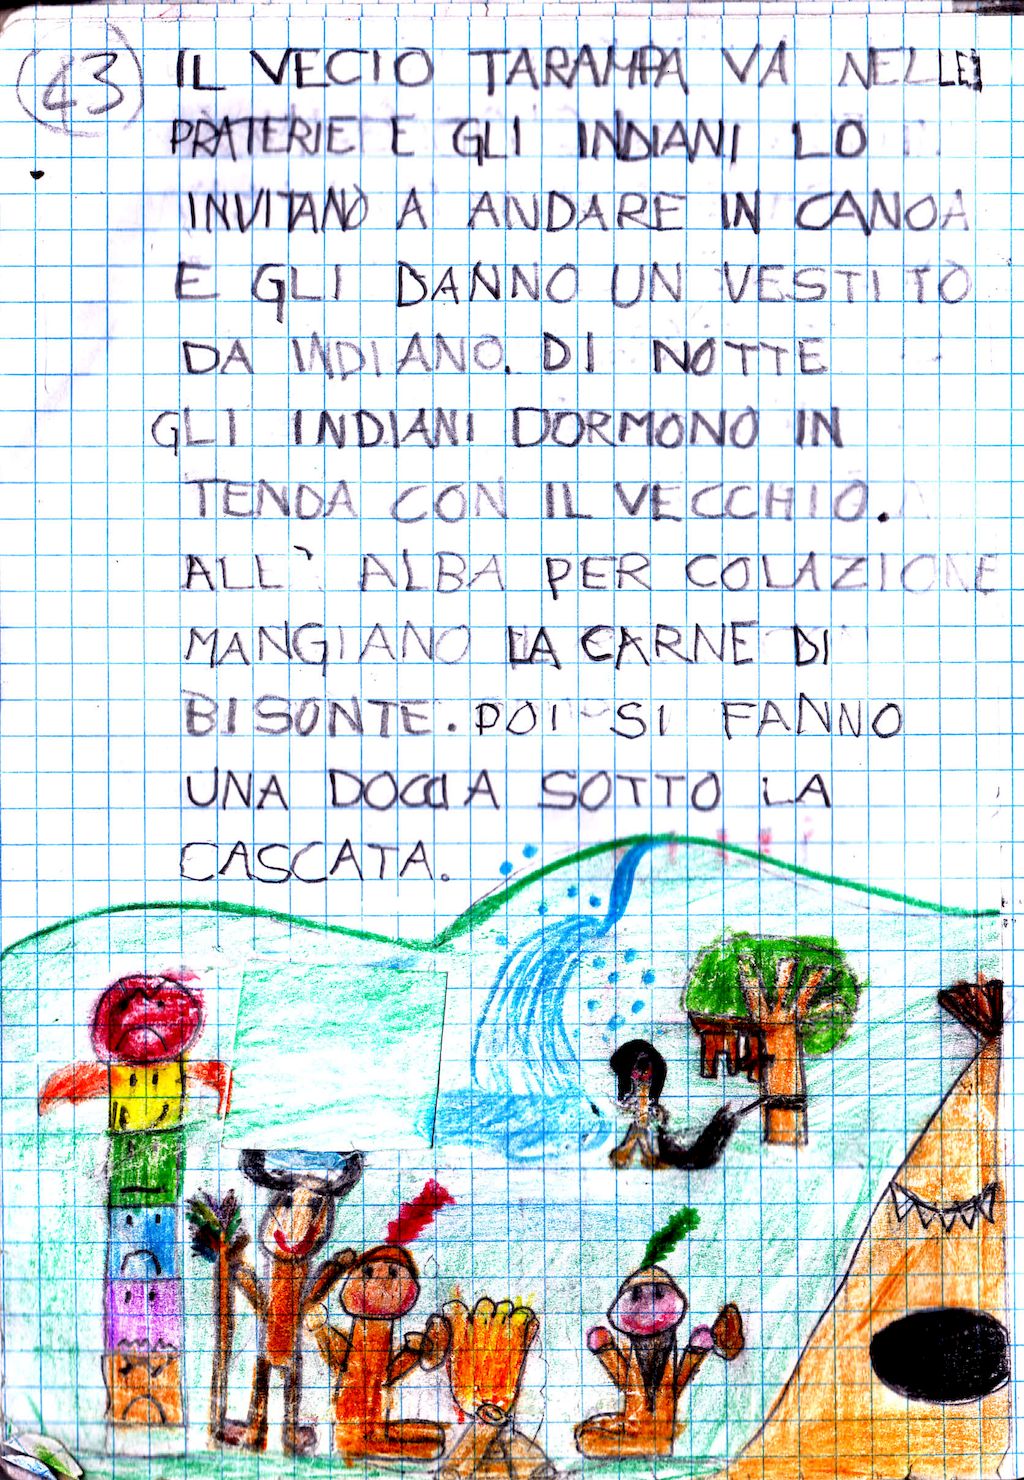 43 IL VECIO TARAMPA VA NELLE
PRATERIE E GLI INDIANI LO
INVITANO A ANDARE IN CANOA
E GLI DANNO UN VESTITO
DA INDIANO. DI NOTTE
GLI INDIANI DORMONO IN
TENDA CON IL VECCHIO.
ALL` ALBA PER COLAZIONE
MANGIANO LA CARNE DI
BISONTE. POI SI FANNO
UNA DOCCIA SOTTO LA
CASCATA.